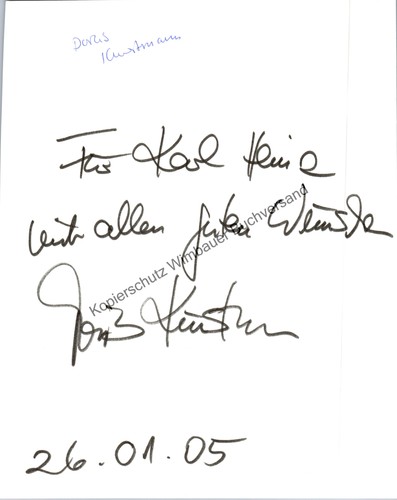 Doris
Kunstmann
Für Karl Heinz
mit allen guten Wünschen
Kopierschutz Wimbauer Buchversand
Doris Kunstmann
26.01.05